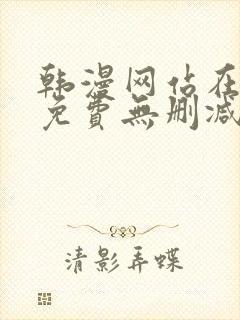 韩漫网站在
免費無刪减
清影弄蝶